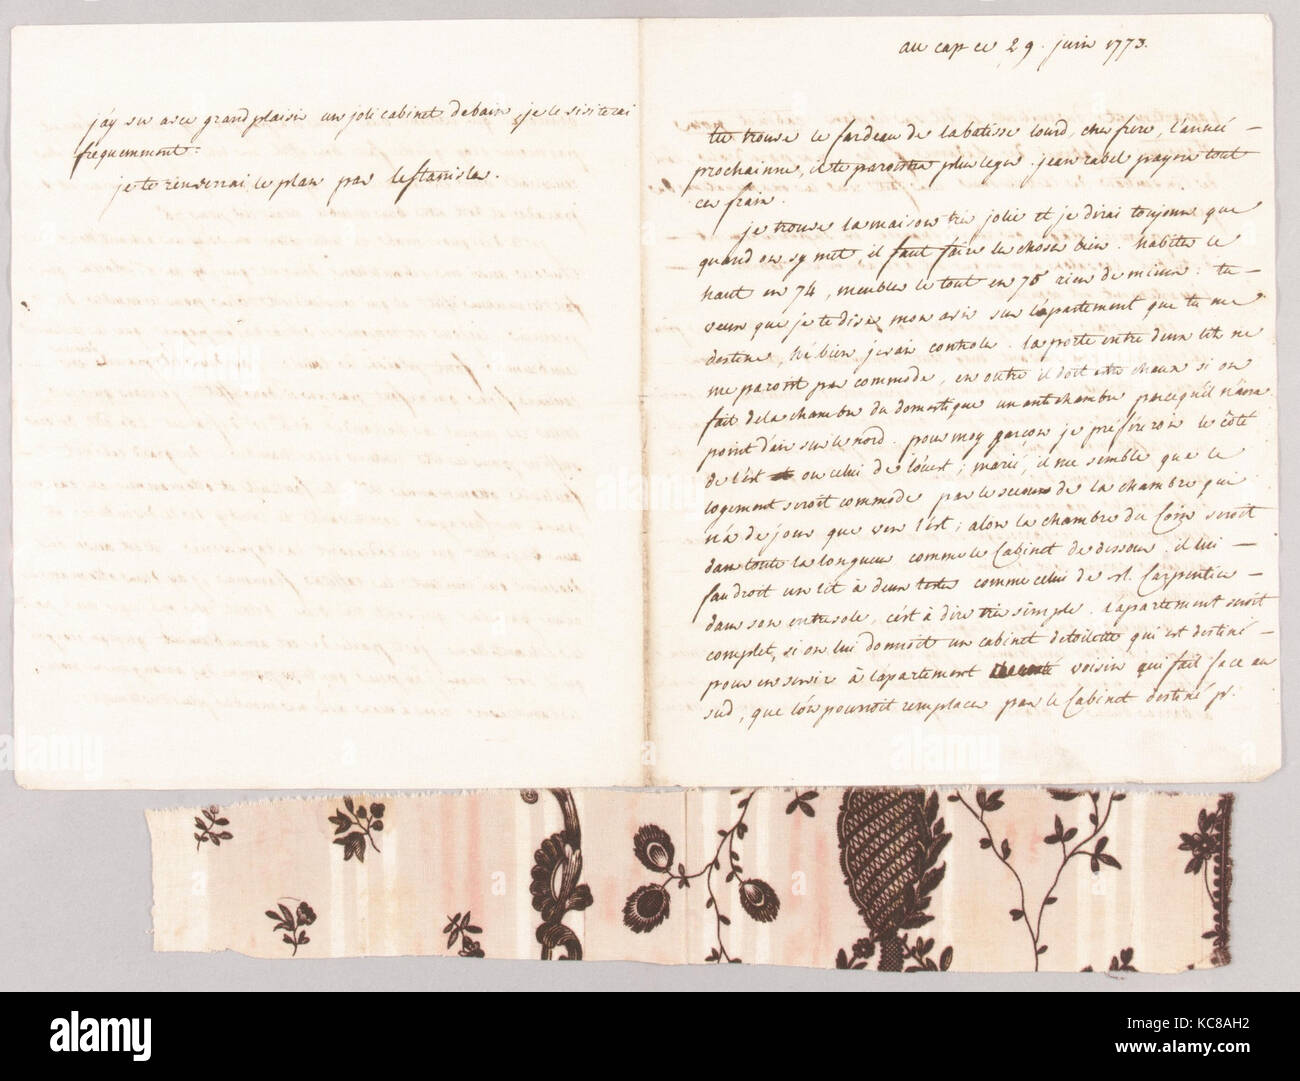 au cap ce 29. juin 1773.
tu trouve le fardeau de la batisse lourd, cher frere, l'année
prochainne, il te paroitra plus leger. jean rabel payera tout
ces frais.
je trouve la maison tres jolie et je dirai toujours que
quand on sy met, il faut faire les choses bien. habiter le
haut en 74, meubler le tout en 75 rien de mieux. tu
veux que je te dise mon avis sur l'apartement que tu me
destine, hé bien je vais controler. la porte entre deux lits ne
me paroit pas commode, en outre il doit etre chaux si on
fait de la chambre du domestique un antichambre parcequ'il n'aura
point d'air sur le nord. pour moy garçon je préférerois le côté
de l'est ou celui de l'ouest; marié, il me semble que ce
logement seroit commode par le secours de la chambre qui
n'a de jour que vers l'est; alors la chambre du Coin seroit
dans toute la longueur comme le Cabinet de dessous. il lui
faudroit un lit à deux testes comme celui de M. Carpentier
dans son entresole, c'est à dire très simple. l'apartement seroit
complet, si on lui donnoit un cabinet de toilette qui est destiné
pour en servir à l'apartement voisin qui fait face au
sud, que l'on pourroit remplacer par le Cabinet destiné pr.
j'ay vu avec grand plaisir un joli cabinet de bain, je le visiterai
fréquemment.
je te renverrai le plan par le Stanislas.
alamy
KC8AH2
www.alamy.com